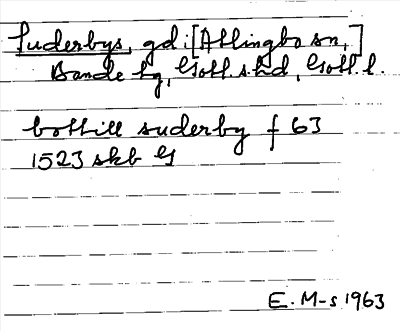 Suderbys, gd. [Atlingbo sn,]
Bande hg, Gotl. s. hd, Gotl. l.
bothill suderby f 63
1523 skb G
E. M-s 1963